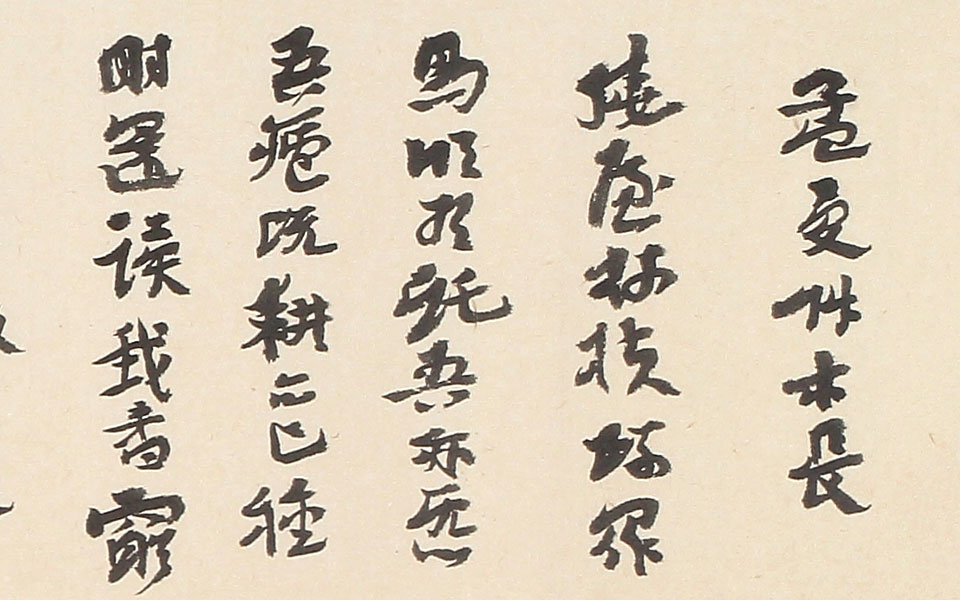 孟夏艸木長
繞屋樹扶疎眾
鳥欣有託吾亦愛
吾廬既耕亦已種
時還讀我書窮